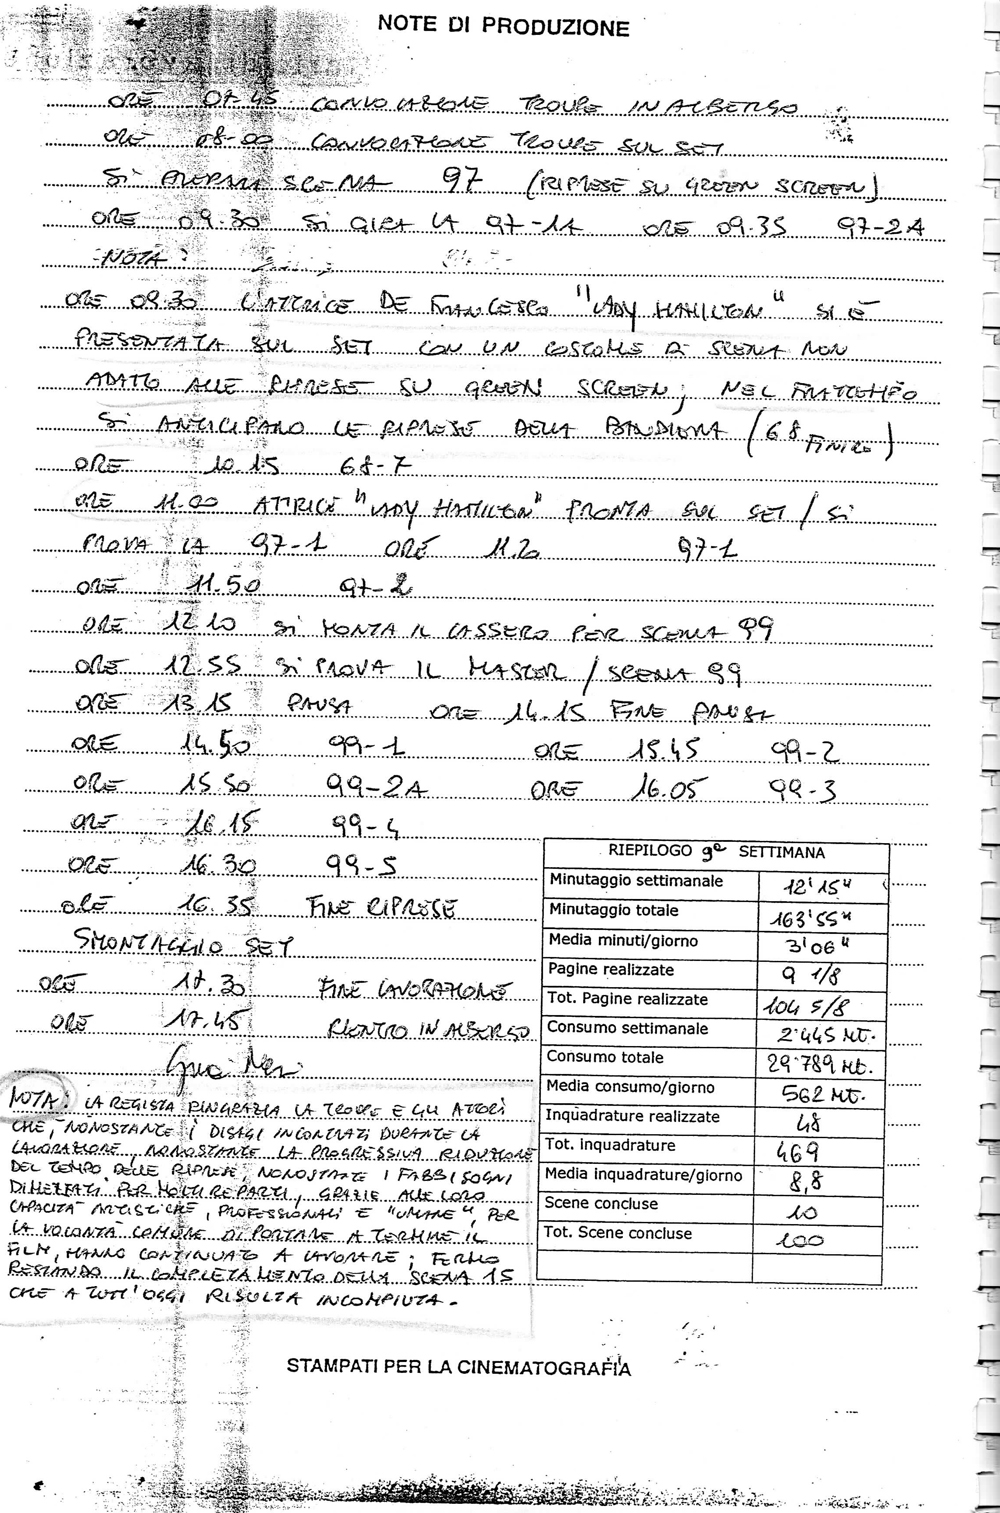 NOTE DI PRODUZIONE
ORE 07.45 CONVOCAZIONE TROUPE IN ALBERGO
ORE 08.00 CONVOCAZIONE TROUPE SUL SET
SI PREPARA SCENA 97 (RIPRESE SU GREEN SCREEN)
ORE 09.30 SI GIRA LA 97-1A ORE 09.35 97-2A
NOTA:
ORE 09.30 L'ATTRICE DE FRANCESCO "LADY HAMILTON" SI È
PRESENTATA SUL SET CON UN COSTUME DI SCENA NON
ADATTO ALLE RIPRESE SU GREEN SCREEN; NEL FRATTEMPO
SI ANTICIPANO LE RIPRESE DELLA BANDIERA (68 FINIRE)
ORE 10.15 68-7
ORE 11.00 ATTRICE "LADY HAMILTON" PRONTA SUL SET / SI
PROVA LA 97-1 ORE 11.20 97-1
ORE 11.50 97-2
ORE 12.10 SI MONTA IL CASSERO PER SCENA 99
ORE 12.55 SI PROVA IL MASTER / SCENA 99
ORE 13.15 PAUSA ORE 14.15 FINE PAUSA
ORE 14.50 99-1 ORE 15.45 99-2
ORE 15.50 99-2A ORE 16.05 99-3
ORE 16.15 99-4
ORE 16.30 99-5
ORE 16.35 FINE RIPRESE
SMONTAGGIO SET
ORE 17.30 FINE LAVORAZIONE
ORE 17.45 RIENTRO IN ALBERGO
NOTA: LA REGISTA RINGRAZIA LA TROUPE E GLI ATTORI
CHE, NONOSTANTE I DISAGI INCONTRATI DURANTE LA
LAVORAZIONE, NONOSTANTE LA PROGRESSIVA RIDUZIONE
DEL TEMPO DELLE RIPRESE, NONOSTANTE I FABBISOGNI
DIMEZZATI PER MOLTI REPARTI, GRAZIE ALLE LORO
CAPACITÀ ARTISTICHE, PROFESSIONALI E "UMANE", PER
LA VOLONTÀ COMUNE DI PORTARE A TERMINE IL
FILM, HANNO CONTINUATO A LAVORARE; FERMO
RESTANDO IL COMPLETAMENTO DELLA SCENA 15
CHE A TUTT'OGGI RISULTA INCOMPIUTA.
RIEPILOGO 9a SETTIMANA
Minutaggio settimanale 12'15"
Minutaggio totale 163'55"
Media minuti/giorno 3'06"
Pagine realizzate 9 1/8
Tot. Pagine realizzate 104 5/8
Consumo settimanale 2'445 MT.
Consumo totale 29'789 Mt.
Media consumo/giorno 562 MT.
Inquadrature realizzate 48
Tot. inquadrature 469
Media inquadrature/giorno 8,8
Scene concluse 10
Tot. Scene concluse 100
STAMPATI PER LA CINEMATOGRAFIA